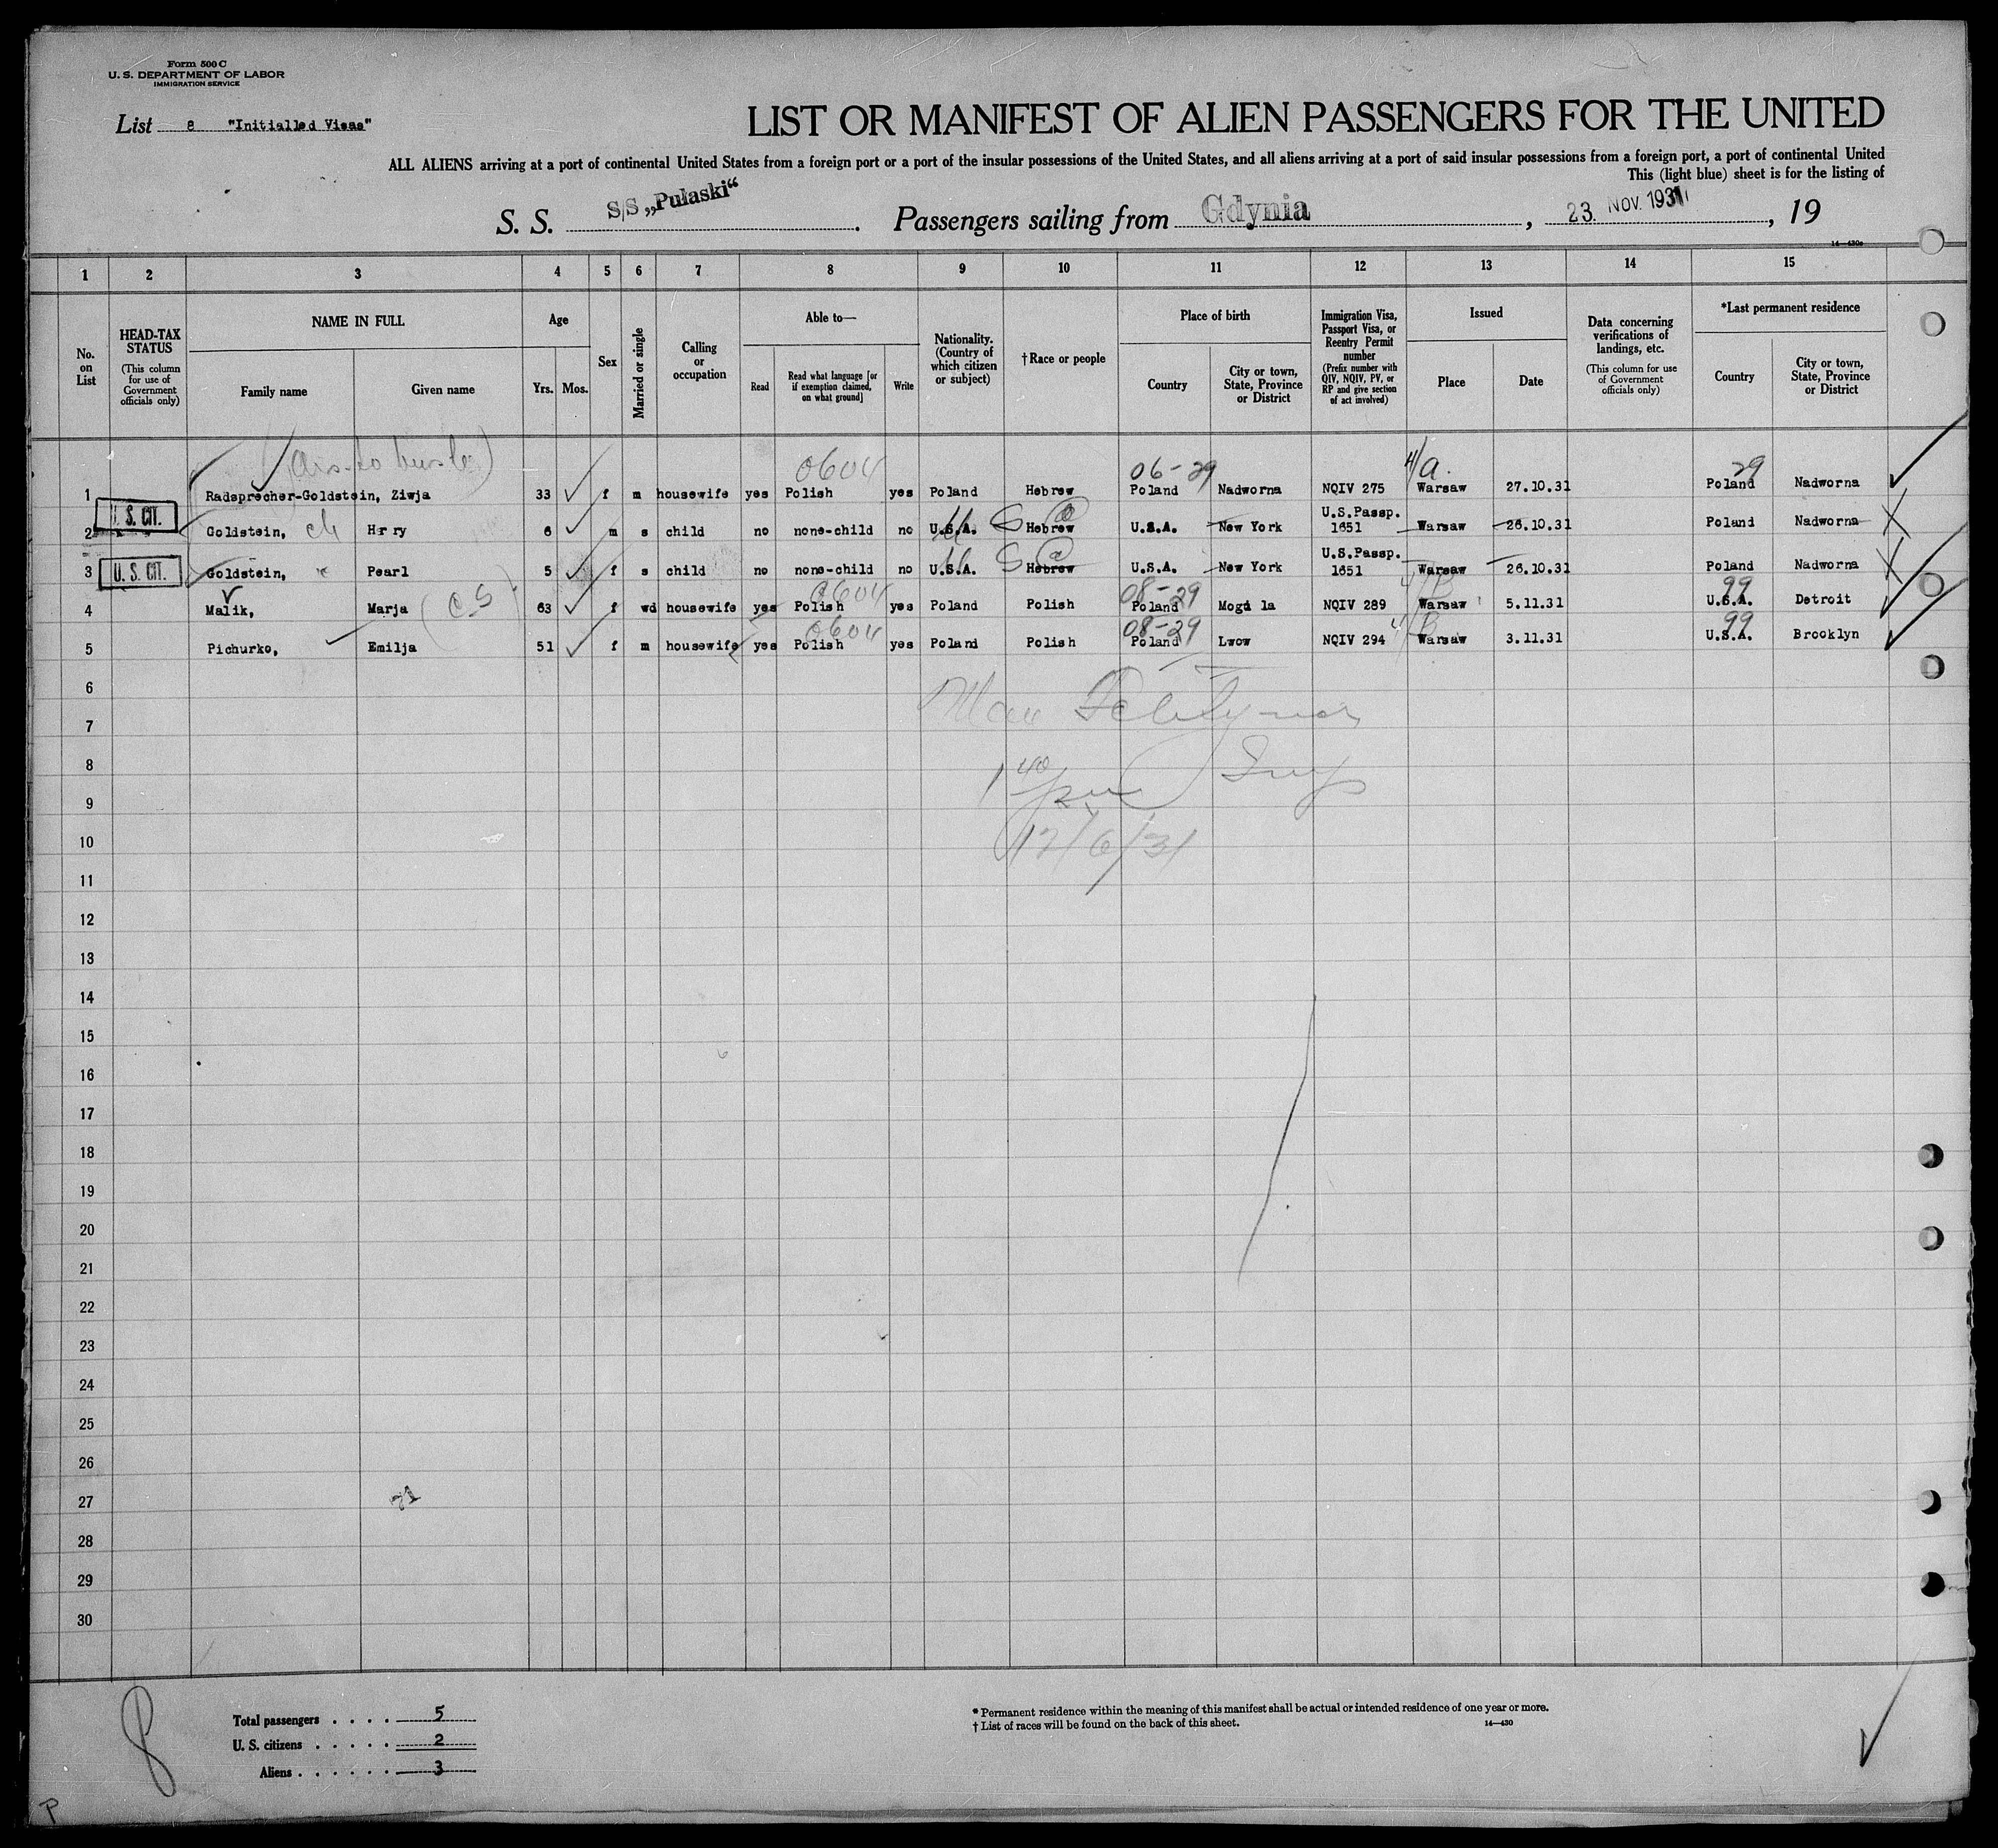 Form 500 C
U. S. DEPARTMENT OF LABOR
IMMIGRATION SERVICE
List 8 "Initialled Visas"
LIST OR MANIFEST OF ALIEN PASSENGERS FOR THE UNITED
ALL ALIENS arriving at a port of continental United States from a foreign port or a port of the insular possessions of the United States, and all aliens arriving at a port of said insular possessions from a foreign port, a port of continental United
This (light blue) sheet is for the listing of
S. S. S/S „Pułaski“. Passengers sailing from Gdynia, 23. NOV. 1931, 19
14—430a
1 2 3 4 5 6 7 8 9 10 11 12 13 14 15
No. on List
HEAD-TAX STATUS (This column for use of Government officials only)
NAME IN FULL Family name Given name
Age Yrs. Mos.
Sex
Married or single
Calling or occupation
Able to— Read Read what language [or if exemption claimed, on what ground] Write
Nationality. (Country of which citizen or subject)
†Race or people
Place of birth Country City or town, State, Province or District
Immigration Visa, Passport Visa, or Reentry Permit number (Prefix number with QIV, NQIV, PV, or RP and give section of act involved)
Issued Place Date
Data concerning verifications of landings, etc. (This column for use of Government officials only)
*Last permanent residence Country City or town, State, Province or District
0604 06-29 4/a. 29
1 Radsprecher-Goldstein, Ziwja 33 f m housewife yes Polish yes Poland Hebrew Poland Nadworna NQIV 275 Warsaw 27.10.31 Poland Nadworna
U. S. CIT.
2 Goldstein, ch Hrry 6 m s child no none-child no U.S.A. Hebrew U.S.A. New York U.S.Passp. 1651 Warsaw 26.10.31 Poland Nadworna
3 U. S. CIT. Goldstein, " Pearl 5 f s child no none-child no U.S.A. Hebrew U.S.A. New York U.S.Passp. 1651 Warsaw 26.10.31 Poland Nadworna
0604 08-29 4/B 99
4 Malik, Marja (CS) 63 f wd housewife yes Polish yes Poland Polish Poland NQIV 289 Warsaw 5.11.31 U.S.A. Detroit
0604 08-29 4/B 99
5 Pichurko, Emilja 51 f m housewife yes Polish yes Poland Polish Poland Lwow NQIV 294 Warsaw 3.11.31 U.S.A. Brooklyn
6
7
8
1 40 pm Insp
9
10
12/6/31
11
12
13
14
15
16
17
18
19
20
21
22
23
24
25
26
27
28
29
30
8
Total passengers . . . . 5
U. S. citizens . . . . . 2
Aliens . . . . . . 3
* Permanent residence within the meaning of this manifest shall be actual or intended residence of one year or more.
† List of races will be found on the back of this sheet.
14—430
P